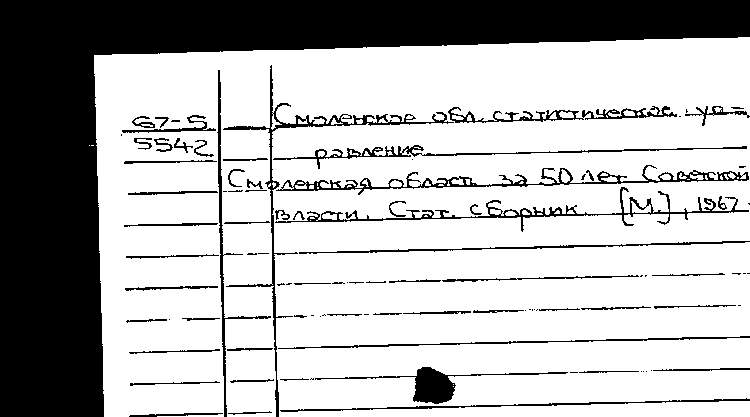 67-5
5542
Смоленское обл. статистическое уп=
равление.
Смоленская область за 50 лет Советской
власти. Стат. сборник. [М.], 1967.